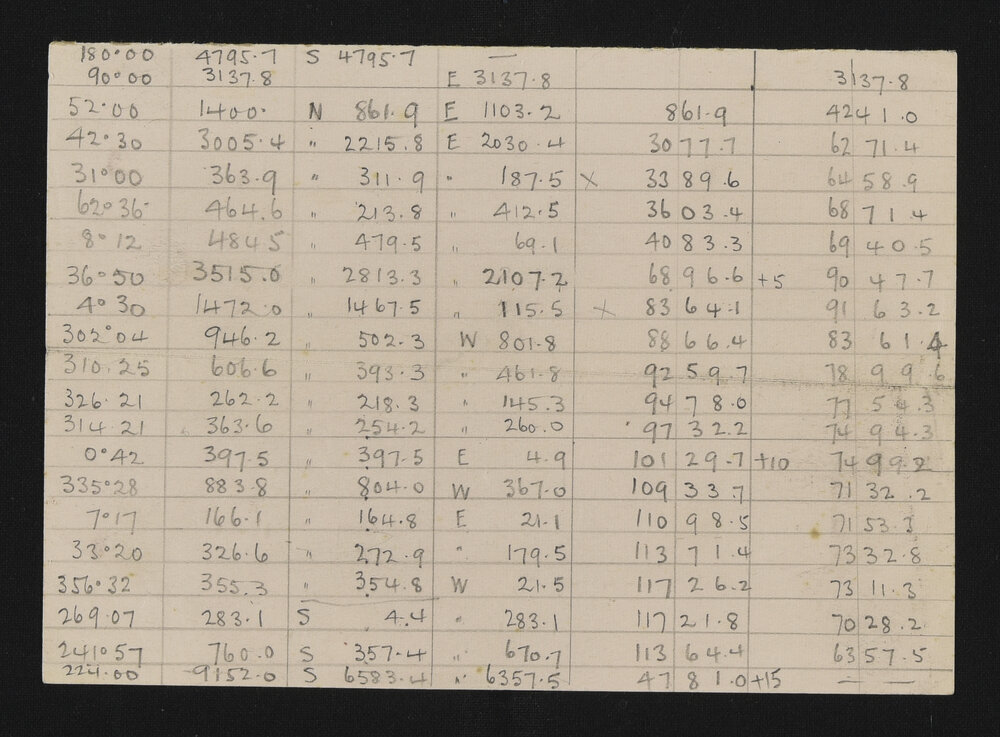 180°00 4795.7 S 4795.7 —
90°00 3137.8 E 3137.8 3137.8
52°00 1400. N 861.9 E 1103.2 861.9 4241.0
42°30 3005.4 " 2215.8 E 2030.4 3077.7 6271.4
31°00 363.9 " 311.9 " 187.5 X 3389.6 6458.9
62°36 464.6 " 213.8 " 412.5 3603.4 6871.4
8°12 484.5 " 479.5 " 69.1 4083.3 6940.5
36°50 3515.0 " 2813.3 " 2107.2 6896.6 +5 9047.7
4°30 1472.0 " 1467.5 " 115.5 X 8364.1 9163.2
302°04 946.2 " 502.3 W 801.8 8866.4 8361.4
310.25 606.6 " 393.3 " 461.8 9259.7 7899.6
326.21 262.2 " 218.3 " 145.3 9478.0 7754.3
314.21 363.6 " 254.2 " 260.0 9732.2 7494.3
0°42 397.5 " 397.5 E 4.9 10129.7 +10 7499.2
335°28 883.8 " 804.0 W 367.0 10933.7 7132.2
7°17 166.1 " 164.8 E 21.1 11098.5 7153.3
33°20 326.6 " 272.9 " 179.5 11371.4 7332.8
356°32 355.3 " 354.8 W 21.5 11726.2 7311.3
269.07 283.1 S 4.4 " 283.1 11721.8 7028.2
241°57 760.0 S 357.4 " 670.7 11364.4 6357.5
224.00 9152.0 S 6583.4 " 6357.5 4781.0 +15 — —